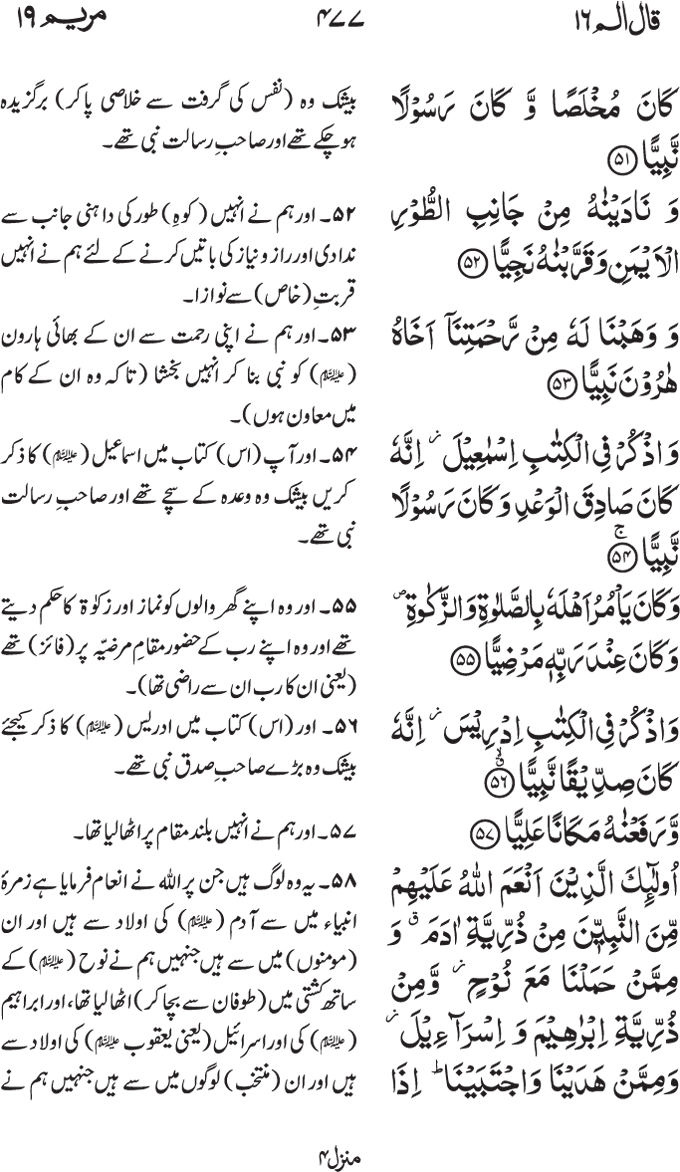 قال الم ١٦
٤٧٧
مریم ١٩
كَانَ مُخْلَصًا وَّ كَانَ رَسُوْلًا
نَّبِیًّا ﴿۵۱﴾
وَ نَادَیْنٰهُ مِنْ جَانِبِ الطُّوْرِ
الْاَیْمَنِ وَ قَرَّبْنٰهُ نَجِیًّا ﴿۵۲﴾
وَ وَهَبْنَا لَهٗ مِنْ رَّحْمَتِنَاۤ اَخَاهُ
هٰرُوْنَ نَبِیًّا ﴿۵۳﴾
وَ اذْكُرْ فِی الْكِتٰبِ اِسْمٰعِیْلَ ؗ اِنَّهٗ
كَانَ صَادِقَ الْوَعْدِ وَ كَانَ رَسُوْلًا
نَّبِیًّا ۚ﴿۵۴﴾
وَ كَانَ یَاْمُرُ اَهْلَهٗ بِالصَّلٰوةِ وَ الزَّكٰوةِ ۪
وَ كَانَ عِنْدَ رَبِّهٖ مَرْضِیًّا ﴿۵۵﴾
وَ اذْكُرْ فِی الْكِتٰبِ اِدْرِیْسَ ؗ اِنَّهٗ
كَانَ صِدِّیْقًا نَّبِیًّا ۗۙ﴿۵۶﴾
وَّ رَفَعْنٰهُ مَكَانًا عَلِیًّا ﴿۵۷﴾
اُولٰٓىِٕكَ الَّذِیْنَ اَنْعَمَ اللّٰهُ عَلَیْهِمْ
مِّنَ النَّبِیّٖنَ مِنْ ذُرِّیَّةِ اٰدَمَ ۗ وَ
مِمَّنْ حَمَلْنَا مَعَ نُوْحٍ ؗ وَّ مِنْ
ذُرِّیَّةِ اِبْرٰهِیْمَ وَ اِسْرَآءِیْلَ ؗ
وَ مِمَّنْ هَدَیْنَا وَ اجْتَبَیْنَا ؕ اِذَا
بیشک وہ (نفس کی گرفت سے خلاصی پاکر) برگزیدہ
ہوچکے تھے اور صاحبِ رسالت نبی تھے۔
۵۲۔ اور ہم نے انہیں (کوہِ) طور کی داہنی جانب سے
ندا دی اور راز و نیاز کی باتیں کرنے کے لئے ہم نے انہیں
قربتِ (خاص) سے نوازا۔
۵۳۔ اور ہم نے اپنی رحمت سے ان کے بھائی ہارون
(علیہ السلام) کو نبی بنا کر انہیں بخشا (تاکہ وہ ان کے کام
میں معاون ہوں)۔
۵۴۔ اور آپ (اس) کتاب میں اسماعیل (علیہ السلام) کا ذکر
کریں بیشک وہ وعدہ کے سچے تھے اور صاحبِ رسالت
نبی تھے۔
۵۵۔ اور وہ اپنے گھر والوں کو نماز اور زکوٰۃ کا حکم دیتے
تھے اور وہ اپنے رب کے حضور مقامِ مرضیّہ پر (فائز) تھے
(یعنی ان کا رب ان سے راضی تھا)۔
۵۶۔ اور (اس) کتاب میں ادریس (علیہ السلام) کا ذکر کیجئے
بیشک وہ بڑے صاحبِ صدق نبی تھے۔
۵۷۔ اور ہم نے انہیں بلند مقام پر اٹھا لیا تھا۔
۵۸۔ یہ وہ لوگ ہیں جن پر اللہ نے انعام فرمایا ہے زمرۂ
انبیاء میں سے آدم (علیہ السلام) کی اولاد سے ہیں اور ان
(مومنوں) میں سے ہیں جنہیں ہم نے نوح (علیہ السلام) کے
ساتھ کشتی میں (طوفان سے بچا کر) اٹھا لیا تھا، اور ابراہیم
(علیہ السلام) کی اور اسرائیل (یعنی یعقوب علیہ السلام) کی اولاد سے
ہیں اور ان (منتخب) لوگوں میں سے ہیں جنہیں ہم نے
منزل ٤